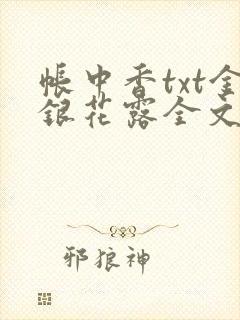 帐中香txt金
银花露全文
邪狼神